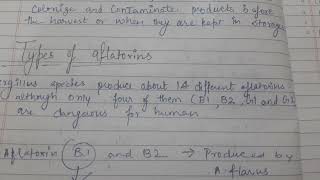 colonize and contaminate products before
the harvest or when they are kept in storage
Types of aflatoxins
ergillus species produce about 14 different aflatoxins
although only four of them (B1, B2, G1 and G2)
are dangerous for human
Aflatoxin (B1) and B2 → Produced by
A. flavus